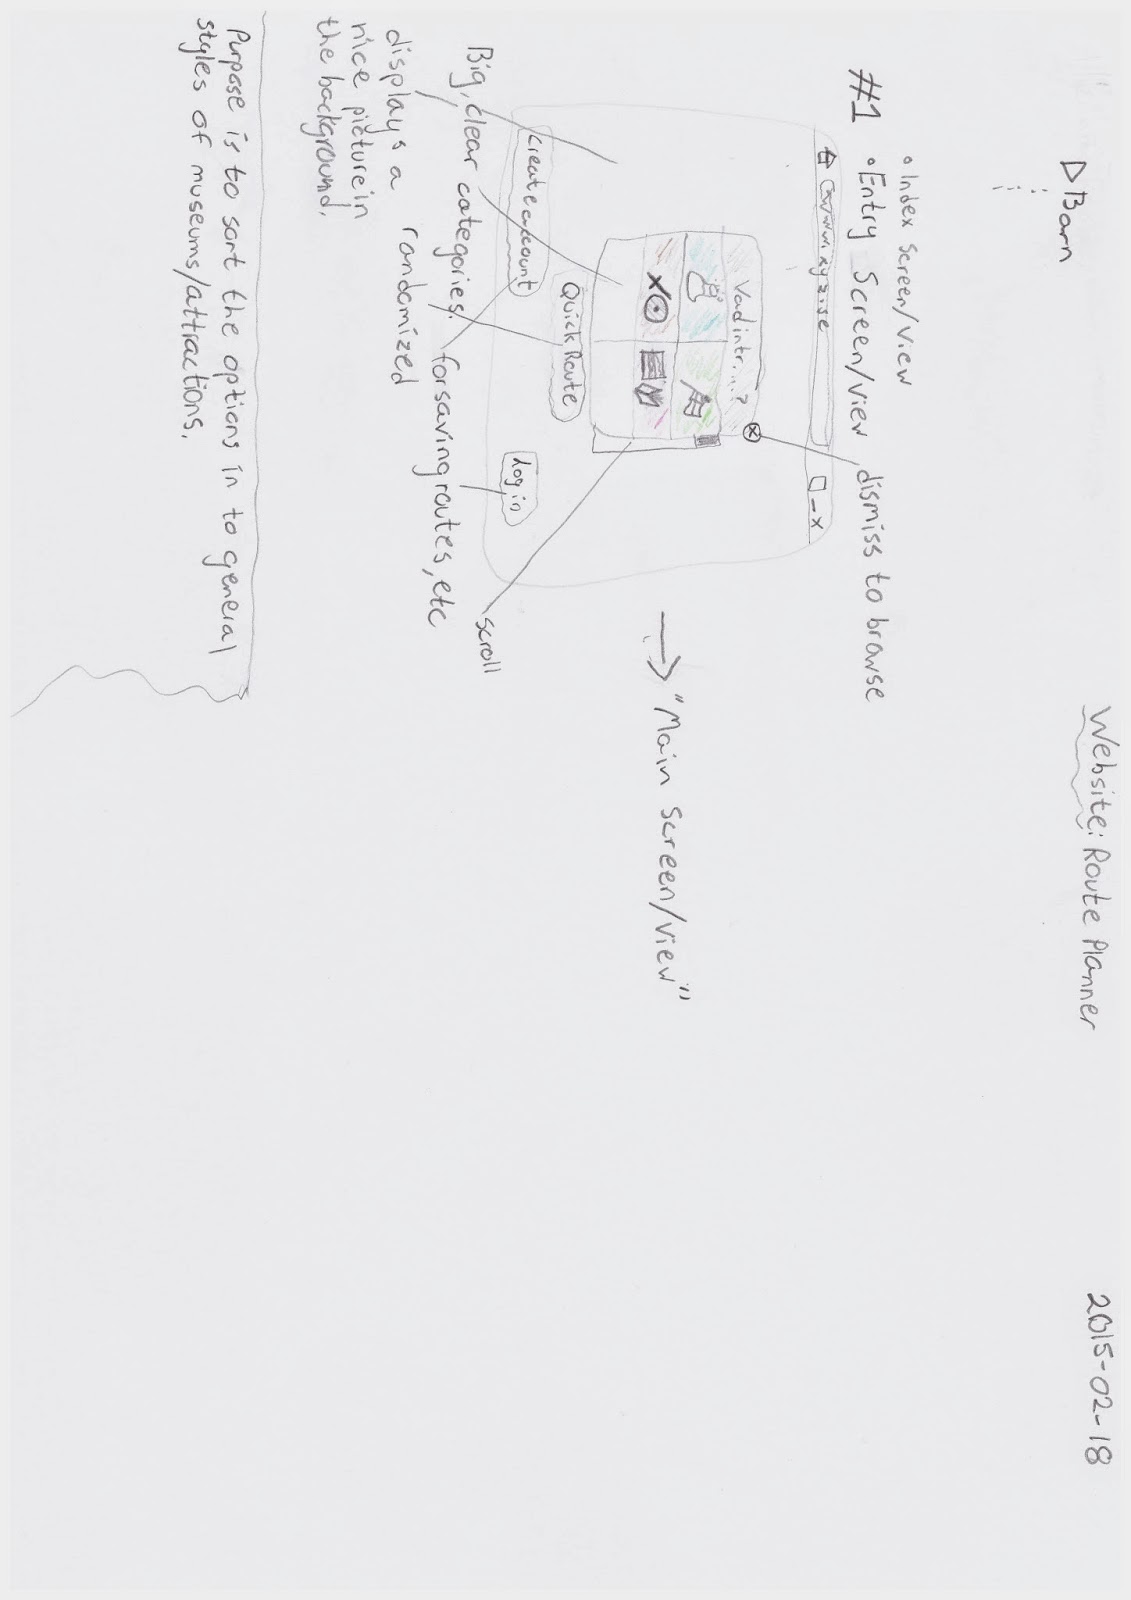 D Barn
Website: Route Planner
2015-02-18
• Index Screen/View
#1 • Entry Screen/View
dismiss to browse
www.xyz.se
Vad intr....?
Quick Route
Create account
Log in
→ "Main Screen/View"
scroll
Big, clear categories.
for saving routes, etc
randomized
displays a
nice picture in
the background.
Purpose is to sort the options in to general
styles of museums/attractions.